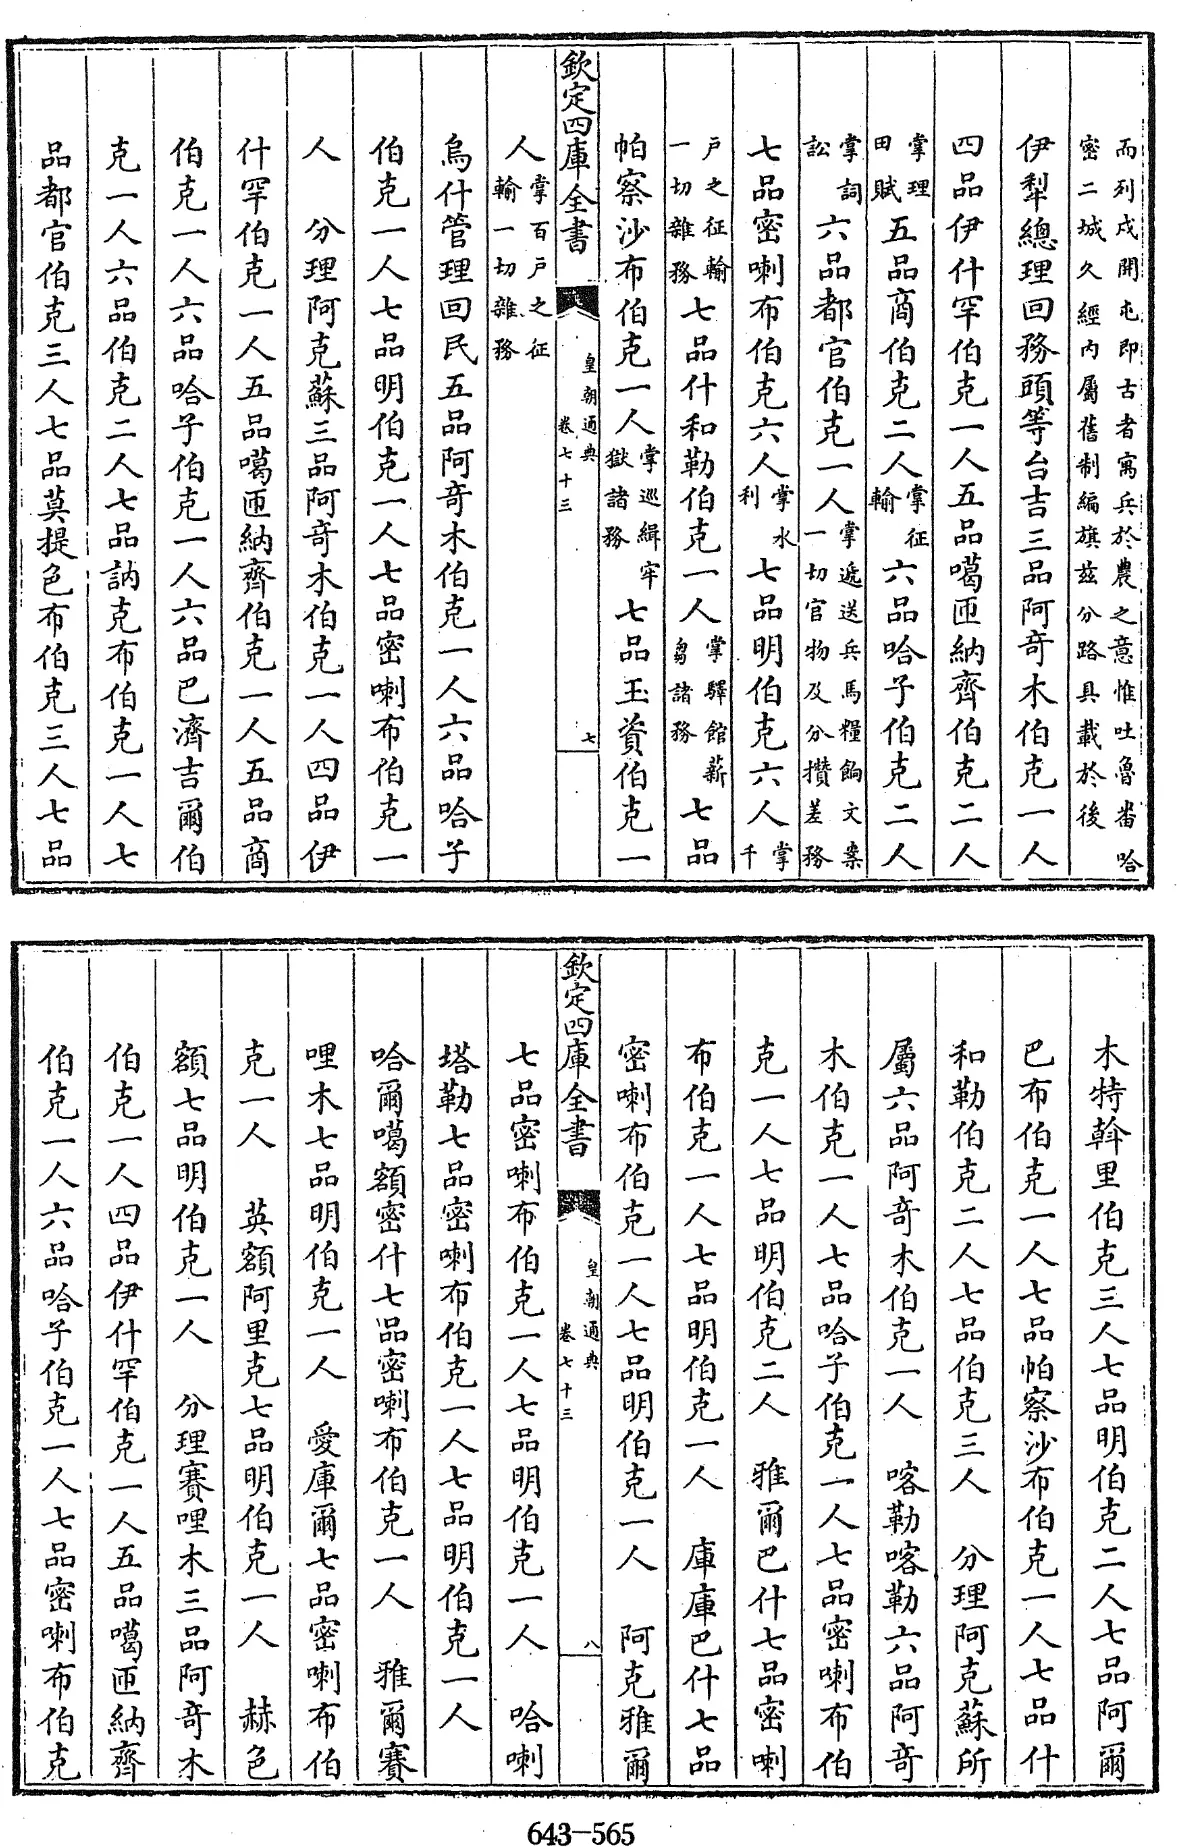 而列戍開屯即古者寓兵於農之意惟吐魯番哈
密二城久經内屬舊制編旗茲分路具載於後
伊犂總理回務頭等台吉三品阿奇木伯克一人
四品伊什罕伯克一人五品噶匝納齊伯克二人
掌理田賦五品商伯克二人掌征輸六品哈子伯克二人
掌詞訟六品都官伯克一人掌遞送兵馬糧餉文案一切官物及分攢差務
七品密喇布伯克六人掌水利七品明伯克六人掌千
户之征輸一切雜務七品什和勒伯克一人掌驛館薪芻諸務七品
帕察沙布伯克一人掌巡緝牢獄諸務七品玉資伯克一
人掌百户之征輸一切雜務
欽定四庫全書 皇朝通典卷七十三 七
烏什管理回民五品阿奇木伯克一人六品哈子
伯克一人七品明伯克一人七品密喇布伯克一
人 分理阿克蘇三品阿奇木伯克一人四品伊
什罕伯克一人五品噶匝納齊伯克一人五品商
伯克一人六品哈子伯克一人六品巴濟吉爾伯
克一人六品伯克二人七品訥克布伯克一人七
品都官伯克三人七品莫提色布伯克三人七品
木特斡里伯克三人七品明伯克二人七品阿爾
巴布伯克一人七品帕察沙布伯克一人七品什
和勒伯克二人七品伯克三人 分理阿克蘇所
屬六品阿奇木伯克一人 喀勒喀勒六品阿奇
木伯克一人七品哈子伯克一人七品密喇布伯
克一人七品明伯克二人 雅爾巴什七品密喇
布伯克一人七品明伯克一人 庫庫巴什七品
密喇布伯克一人七品明伯克一人 阿克雅爾
欽定四庫全書 皇朝通典卷七十三 八
七品密喇布伯克一人七品明伯克一人 哈喇
塔勒七品密喇布伯克一人七品明伯克一人
哈爾噶額密什七品密喇布伯克一人 雅爾賽
哩木七品明伯克一人 愛庫爾七品密喇布伯
克一人 英額阿里克七品明伯克一人 赫色
額七品明伯克一人 分理賽哩木三品阿奇木
伯克一人四品伊什罕伯克一人五品噶匝納齊
伯克一人六品哈子伯克一人七品密喇布伯克
643-565